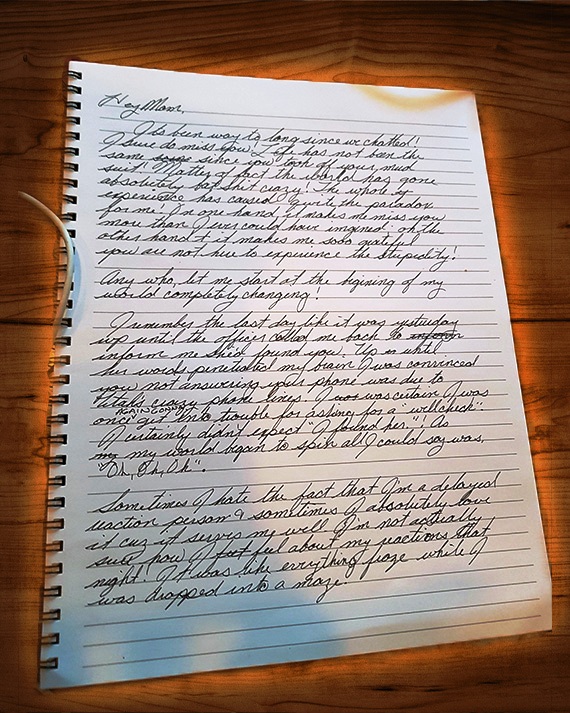 Hey Mom,
Its been way to long since we chatted!
I sure do miss you! Life has not been the
same since you took of your mud
suit! Matter of fact the world has gone
absolutely bat shit crazy! The whole
experience has caused quite the paradox
for me. In one hand, it makes me miss you
more than I ever could have imgined. oh the
other hand it makes me sooo grateful
you are not here to experience the stupidity!
Any who, let me start at the bigining of my
world completely changing!
I remember the last day like it was yesterday
up until the officer called me back to inform
inform me she'd found you. Up until
her words penetrated my brain I was convinced
you not answering your phone was due to
crazy phone lines. I was certain I was
AGAIN GONNA
once get into trouble for asking for a "wellcheck".
I certainly didn't expect "I found her."! As
my my world began to spin all I could say was,
"Oh, Oh, Oh".
Sometimes I hate the fact that I'm a delayed
reaction person & sometimes I absolutely love
it cuz it serves me well. I'm not actually
sure how I feel about my reactions that
night! It was like everything froze while I
was dropped into a maze.